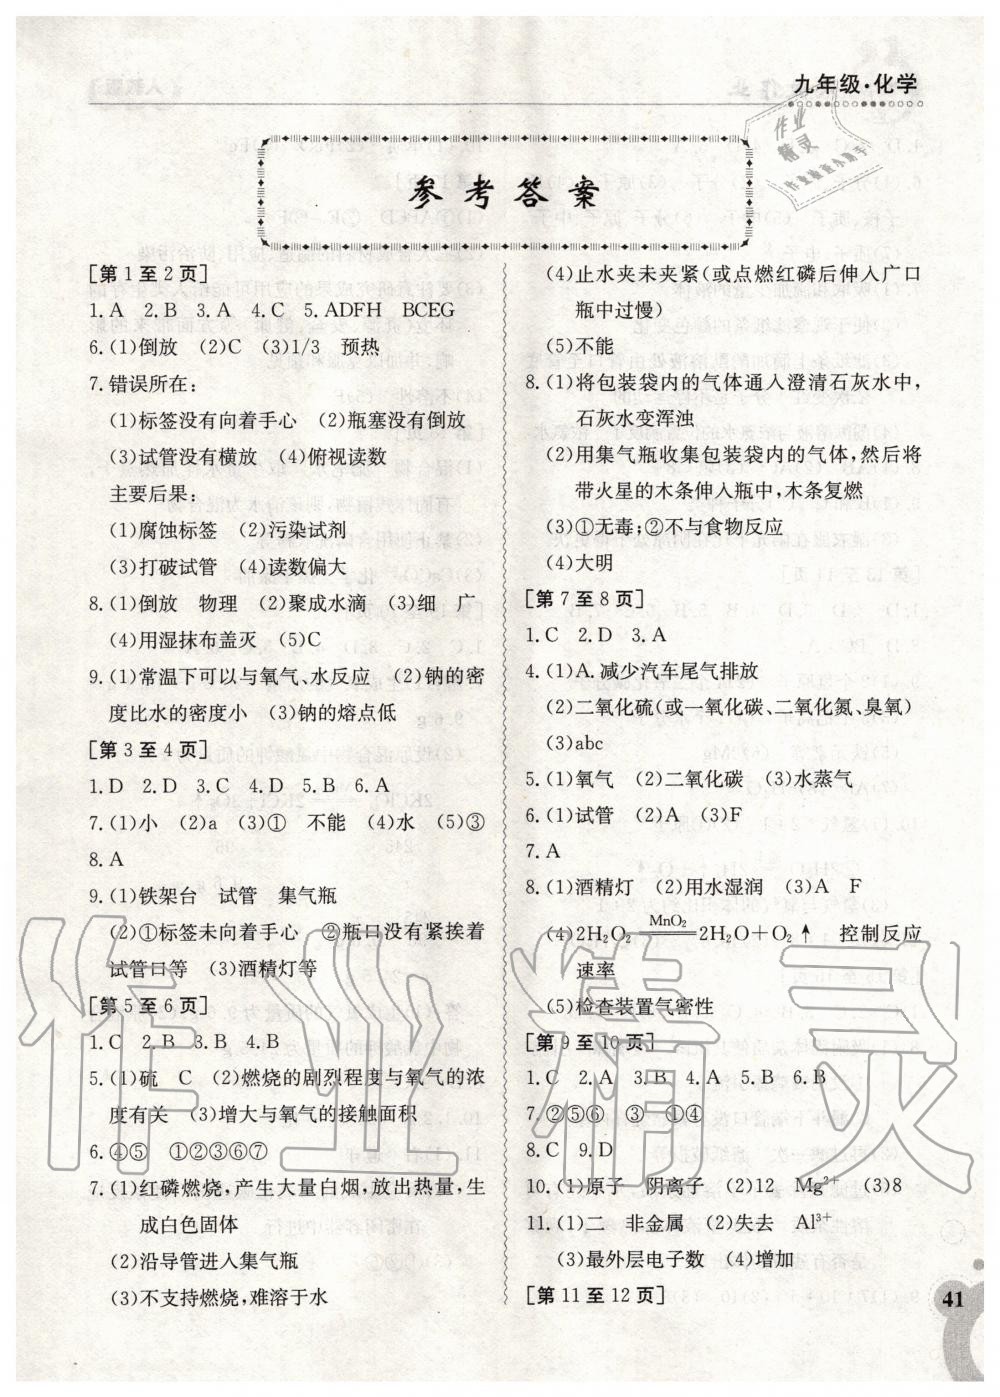 九年级·化学
参考答案
[第1至2页]
1.A 2.B 3.A 4.C 5.ADFH BCEG
6.(1)倒放 (2)C (3)1/3 预热
7.错误所在:
(1)标签没有向着手心 (2)瓶塞没有倒放
(3)试管没有横放 (4)俯视读数
主要后果:
(1)腐蚀标签 (2)污染试剂
(3)打破试管 (4)读数偏大
8.(1)倒放 物理 (2)聚成水滴 (3)细 广
(4)用湿抹布盖灭 (5)C
9.(1)常温下可以与氧气、水反应 (2)钠的密
度比水的密度小 (3)钠的熔点低
[第3至4页]
1.D 2.D 3.C 4.D 5.B 6.A
7.(1)小 (2)a (3)① 不能 (4)水 (5)③
8.A
9.(1)铁架台 试管 集气瓶
(2)①标签未向着手心 ②瓶口没有紧挨着
试管口等 (3)酒精灯等
[第5至6页]
1.C 2.B 3.B 4.B
5.(1)硫 C (2)燃烧的剧烈程度与氧气的浓
度有关 (3)增大与氧气的接触面积
6.④⑤ ①②③⑥⑦
7.(1)红磷燃烧,产生大量白烟,放出热量,生
成白色固体
(2)沿导管进入集气瓶
(3)不支持燃烧,难溶于水
(4)止水夹未夹紧(或点燃红磷后伸入广口
瓶中过慢)
(5)不能
8.(1)将包装袋内的气体通入澄清石灰水中,
石灰水变浑浊
(2)用集气瓶收集包装袋内的气体,然后将
带火星的木条伸入瓶中,木条复燃
(3)①无毒;②不与食物反应
(4)大明
[第7至8页]
1.C 2.D 3.A
4.(1)A.减少汽车尾气排放
(2)二氧化硫(或一氧化碳、二氧化氮、臭氧)
(3)abc
5.(1)氧气 (2)二氧化碳 (3)水蒸气
6.(1)试管 (2)A (3)F
7.A
8.(1)酒精灯 (2)用水湿润 (3)A F
(4)2H₂O₂ ══MnO₂══ 2H₂O+O₂↑ 控制反应
速率
(5)检查装置气密性
[第9至10页]
1.C 2.A 3.B 4.A 5.B 6.B
7.②⑤⑥ ③ ①④
8.C 9.D
10.(1)原子 阴离子 (2)12 Mg²⁺ (3)8
11.(1)二 非金属 (2)失去 Al³⁺
(3)最外层电子数 (4)增加
[第11至12页]
41
作业精灵
作业
精灵